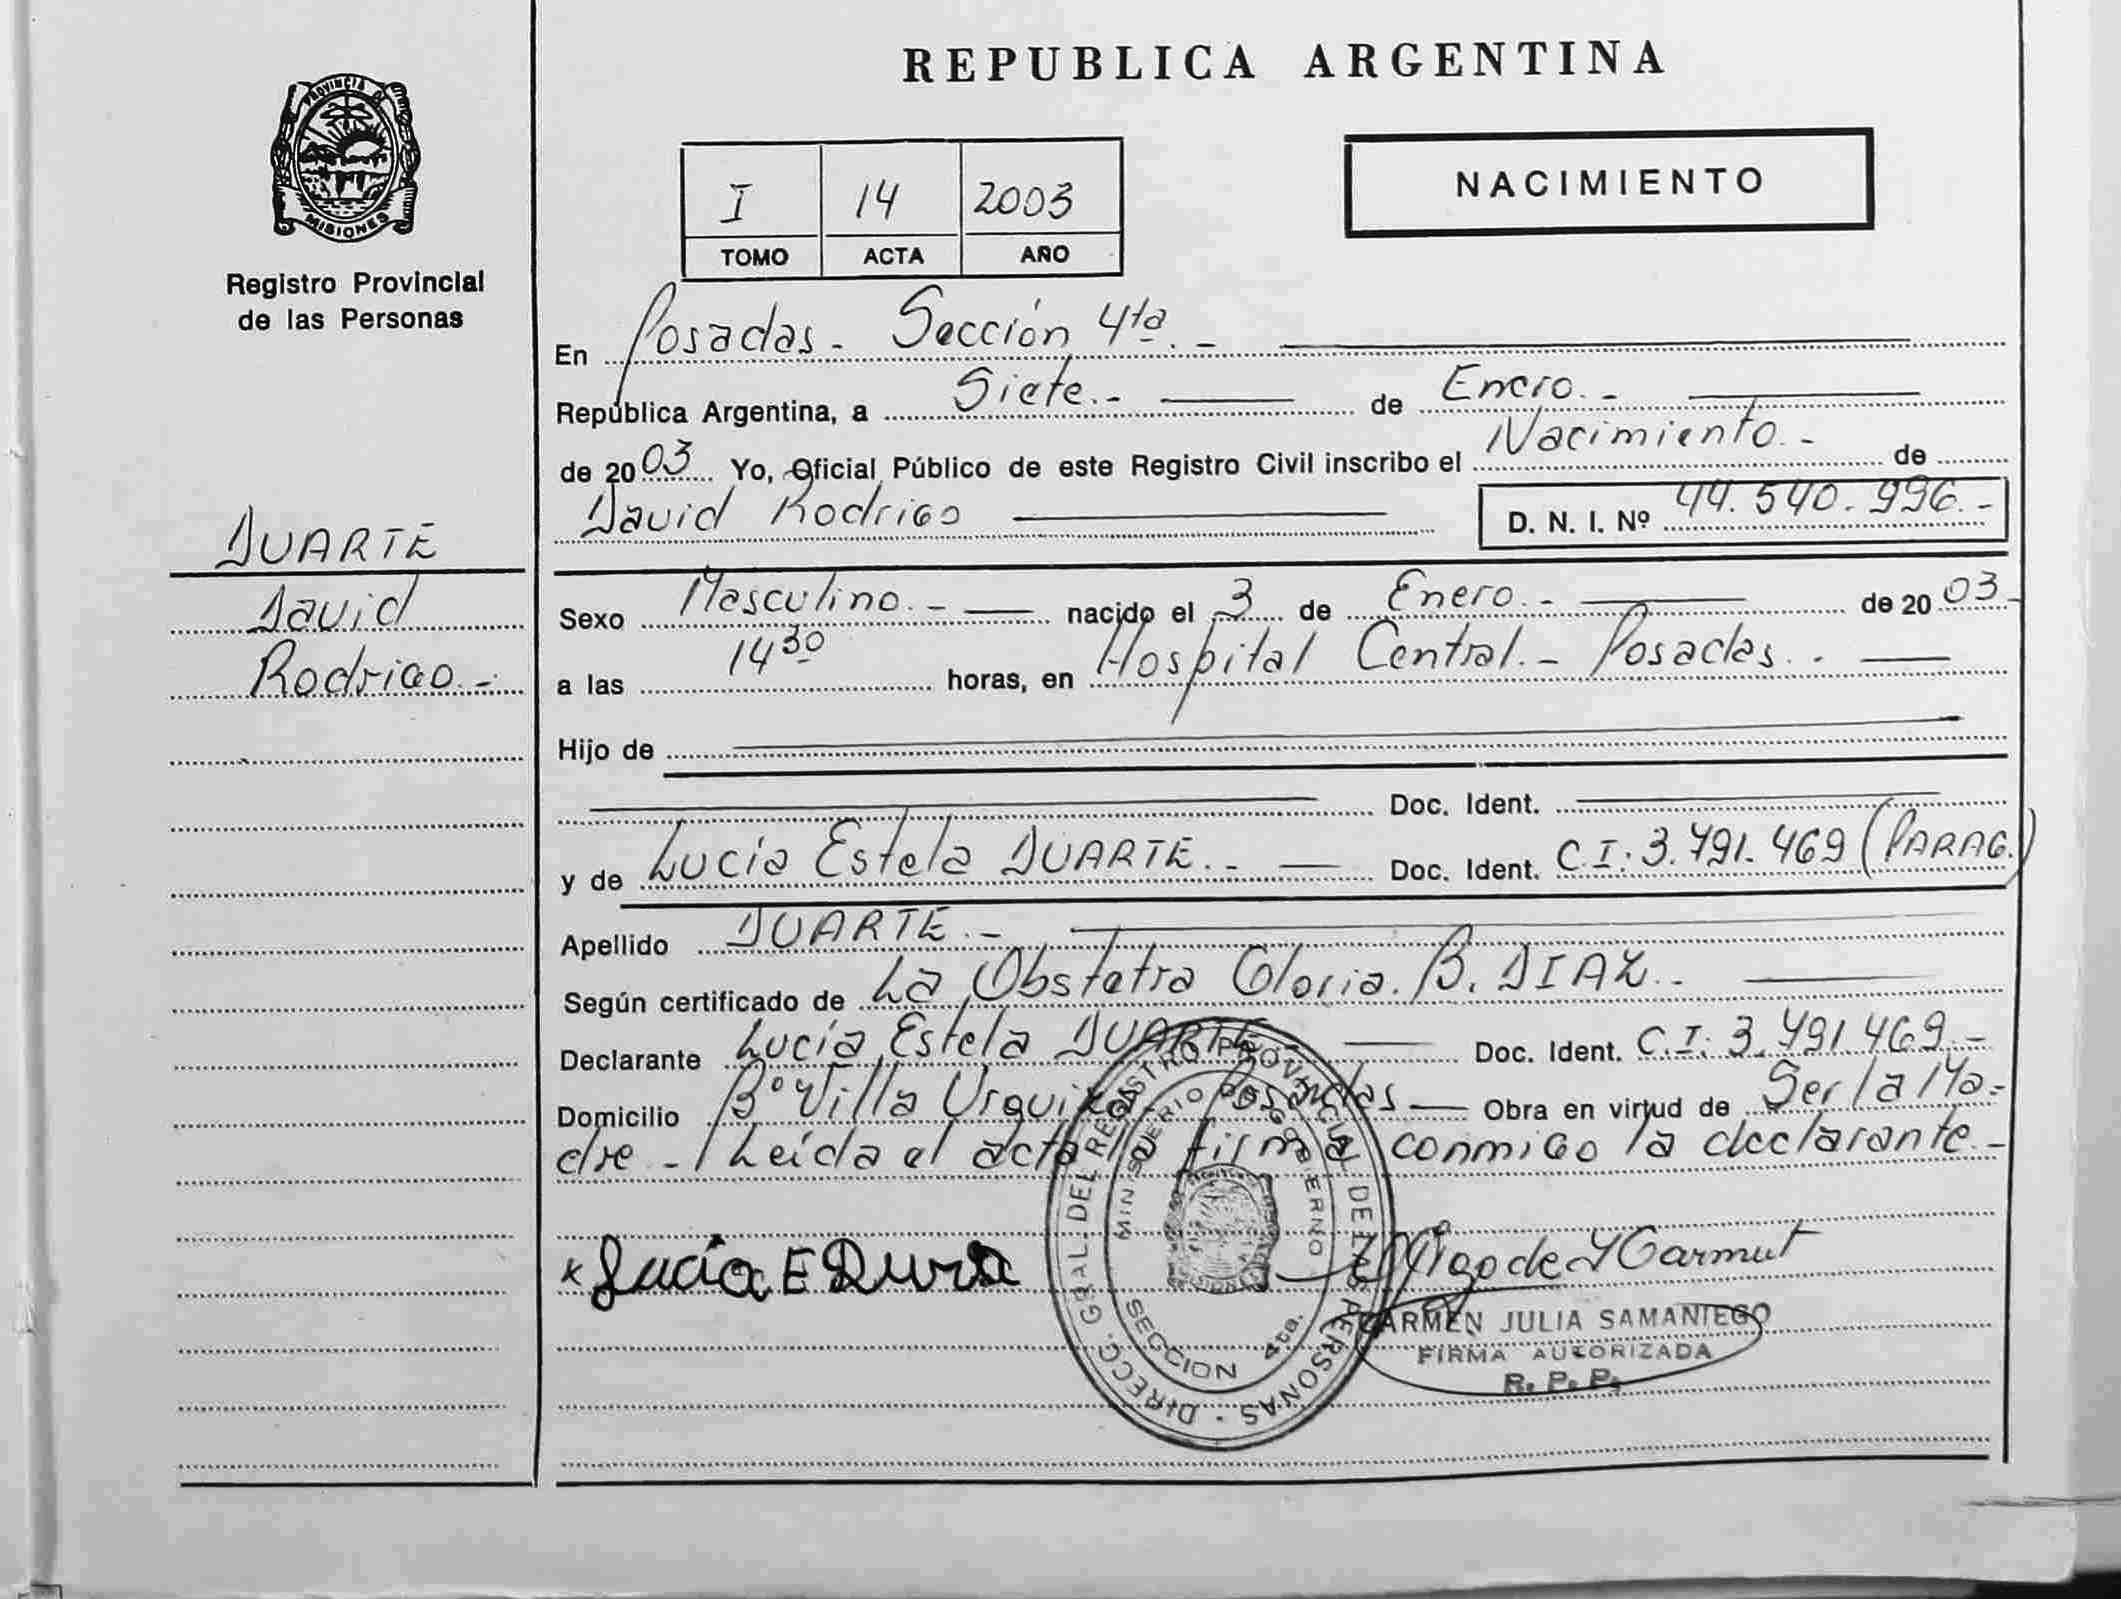 REPUBLICA ARGENTINA
PROVINCIA DE
MISIONES
Registro Provincial
de las Personas
I 14 2003
TOMO ACTA AÑO
NACIMIENTO
En Posadas - Sección 4ta. -
República Argentina, a Siete. - de Enero. -
de 2003 Yo, Oficial Público de este Registro Civil inscribo el Nacimiento. - de
David Rodrigo D. N. I. Nº 44.540.996. -
DUARTE
David
Rodrigo. -
Sexo Masculino. - nacido el 3 de Enero. - de 2003. -
a las 14 30 horas, en Hospital Central. - Posadas. -
Hijo de
Doc. Ident.
y de Lucía Estela DUARTE. - Doc. Ident. C.I: 3.491.469 (PARAG.)
Apellido DUARTE. -
Según certificado de La Obstetra Gloria. B. DIAZ. -
Declarante Lucía Estela DUARTE. - Doc. Ident. C.I: 3.491.469. -
Domicilio Bº Villa Urquiza - Posadas - Obra en virtud de Ser la Ma-
dre - / Leída el acta la firma conmigo la declarante. -
x Lucía E
DIRECC. GRAL. DEL REGISTRO PROVINCIAL DE LAS PERSONAS
MINISTERIO DE GOBIERNO
SECCION 4ta.
CARMEN JULIA SAMANIEGO
FIRMA AUTORIZADA
R. P. P.